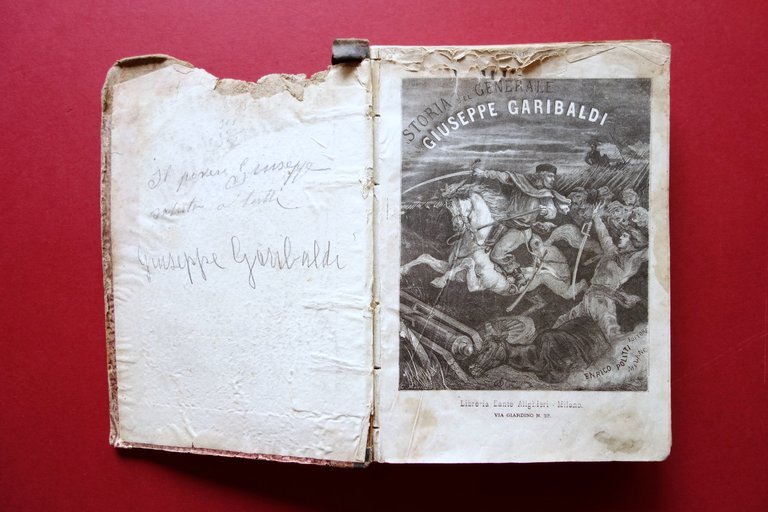 Il pover Giuseppe
saluta a tutti
Giuseppe Garibaldi
STORIA DEL GENERALE
GIUSEPPE GARIBALDI
ENRICO POLITTI
MILANO
Libreria Dante Alighieri - Milano.
VIA GIARDINO N.